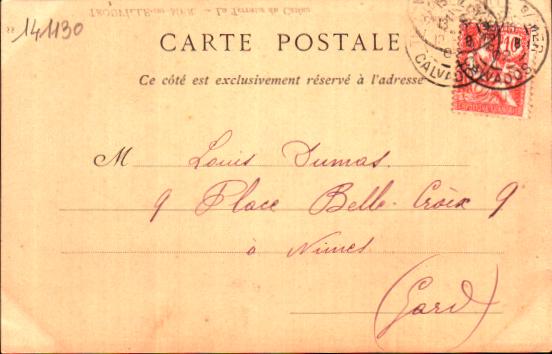 141130
TROUVILLE-sur-MER. — La Terrasse du Casino
CARTE POSTALE
CALVADOS
Ce côté est exclusivement réservé à l'adresse
M Louis Dumas.
9 Place Belle-Croix 9
à Nimes
(Gard)